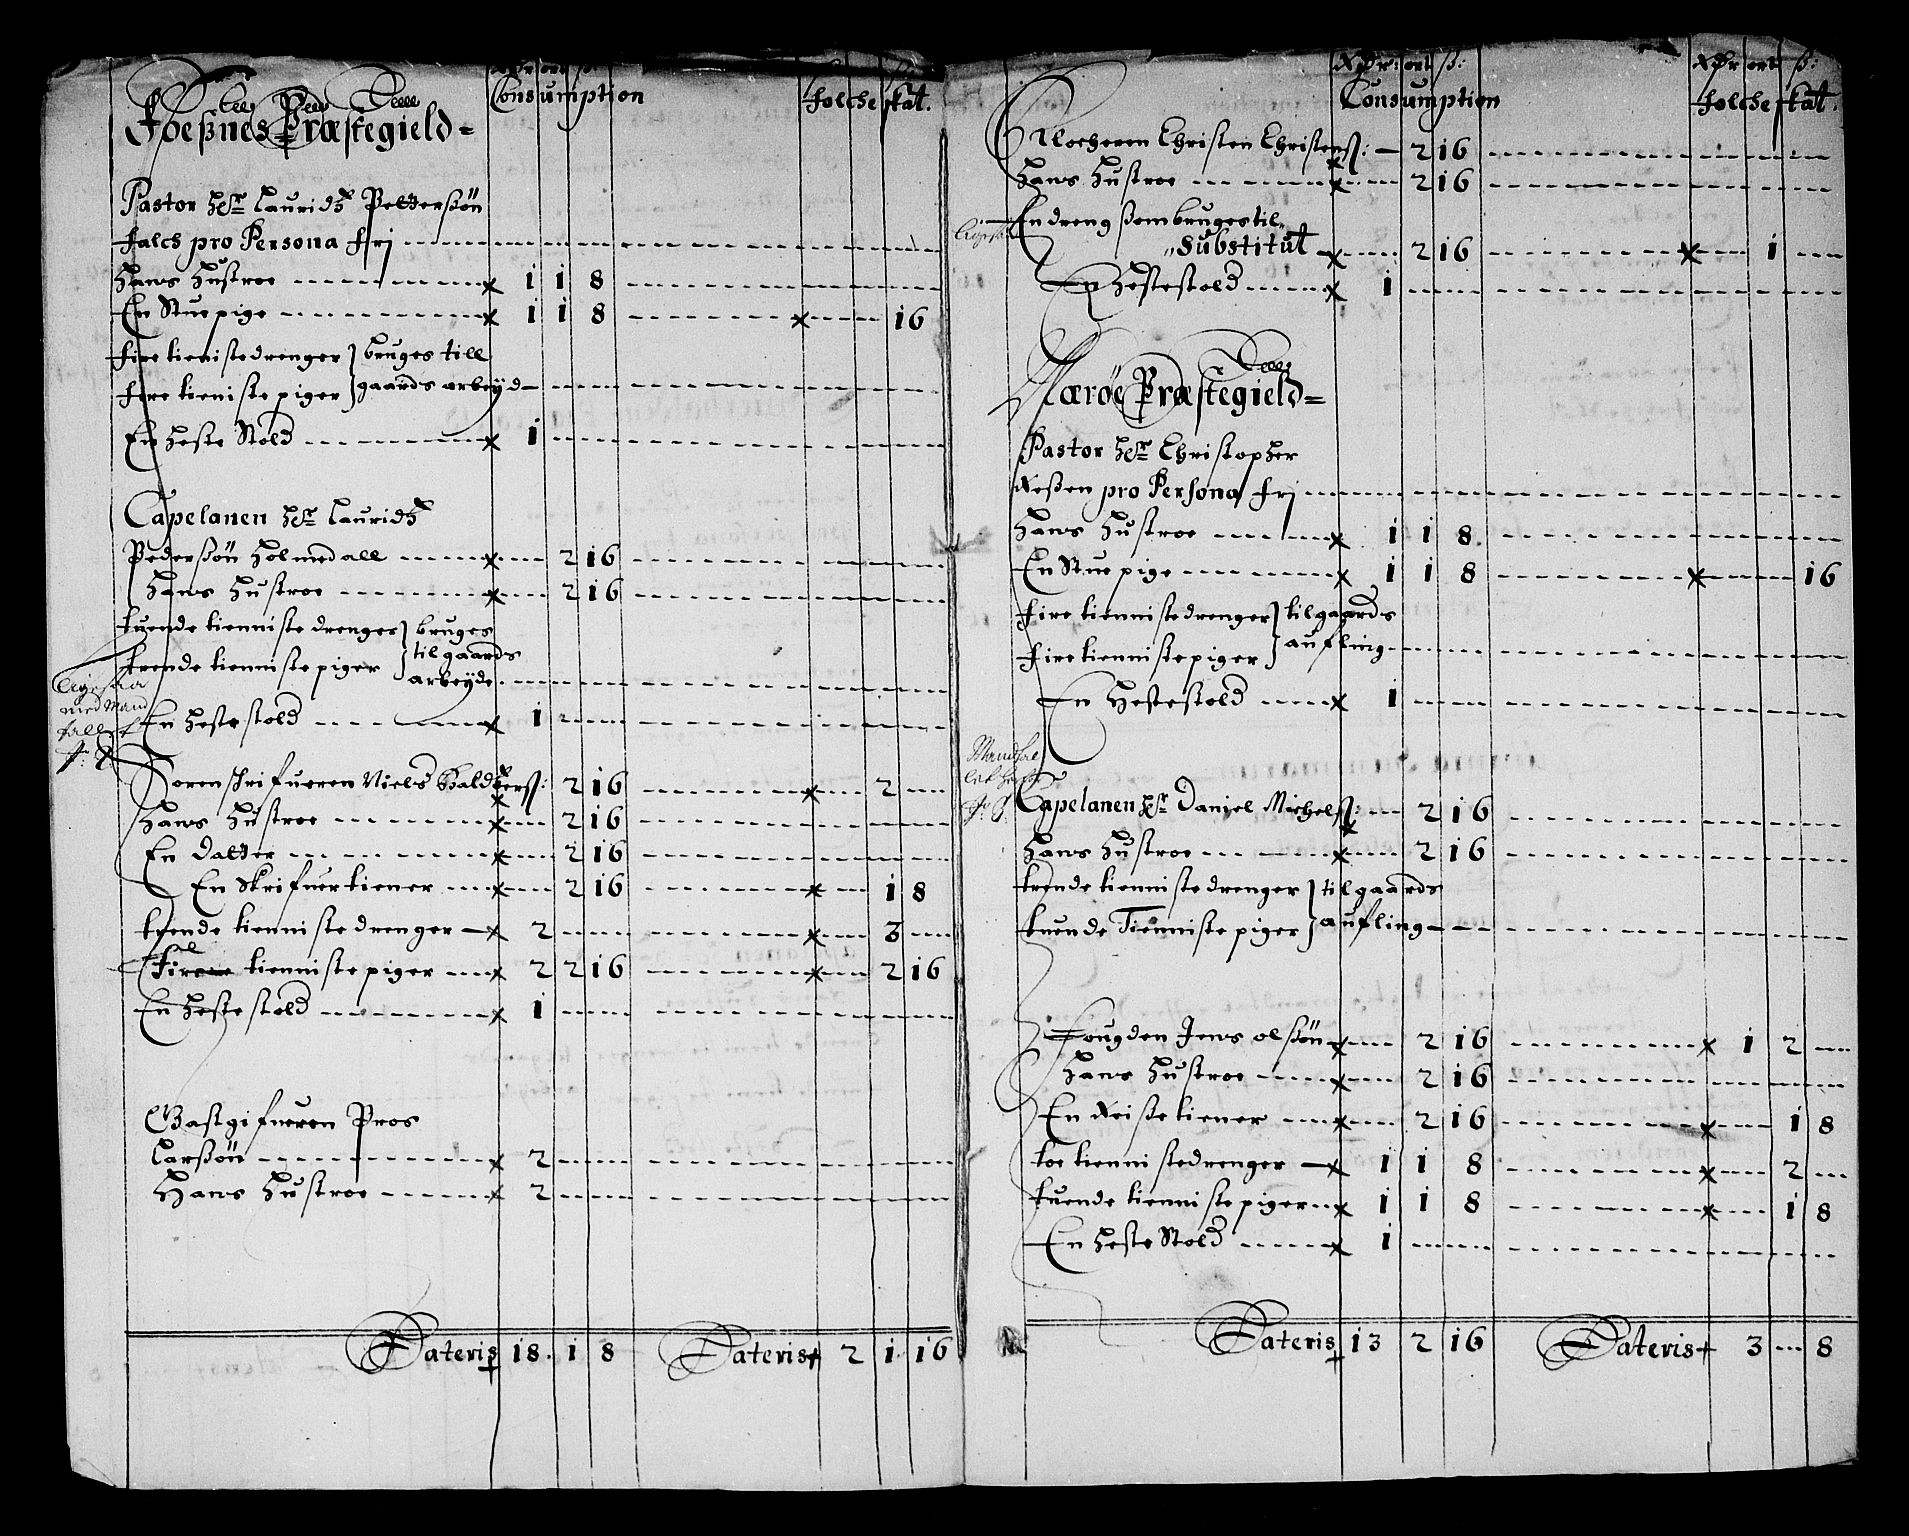 Rdr: ort ß:
Consumption
ß:
folcheskat.
Foeßnes Præstegield =
Pastor Hr Lauridtz Pettersøn
falch pro Persona frj
hans hustroe x 1 1 8
En Stue pige x 1 1 8 x 16
fire tieniste drenger } bruges till
fire tieniste piger } gaards arbeyd
En heste Stold x 1
Capelanen Hr Lauridtz
Pederßøn holmedall x 2 16
hans hustroe x 2 16
tuende tienniste drenger } bruges
trende tienniste piger } til gaards
arbeyde
med Mand
tall
En heste stold x 1
Sorenschrifueren Niels Baldtzerß: x 2 16 x 2
hans hustroe x 2 16
En datter x 2 16
En Skrifuer tiener x 2 16 x 1 8
trende tienniste drenger x 2 x 3
tienniste piger x 2 2 16 x 2 16
En heste stold x 1
Gastgifueren Pros
Larßøn x 2
Hans hustroe x 2
Lateris 18. 1 8 Lateris 2 1 16
Rdr: ort ß:
Consumption
Rdr ort ß:
folcheskat.
Clocheren Christen Christenß: x 2 16
hans hustroe x 2 16
En dreng ßom bruges til
"Substitut x 2 16 x 1
En hestestold x 1
Nærøe Præstegield =
Pastor Hr Christopher
Neßen pro Persona frj
hans hustroe x 1 1 8
En Stue pige x 1 1 8 x 16
fire tienniste drenger } til gaards
fire tienniste piger } aufling
En hestestold x 1
Capelanen Hr Daniel Michelß: x 2 16
hans hustroe x 2 16
trende tienniste drenger } til gaards
tuende Tienniste piger } aufling
Fougden Jens olßøn x 2 16 x 1 2
hans hustroe x 2 16
En Reiße tiener x 2 16 x 1 8
toe tienniste drenger x 1 1 8 x 2
tuende tienniste piger x 1 1 8 x 1 8
En heste Stold x 1
Lateris 13 2 16 Lateris 3 8